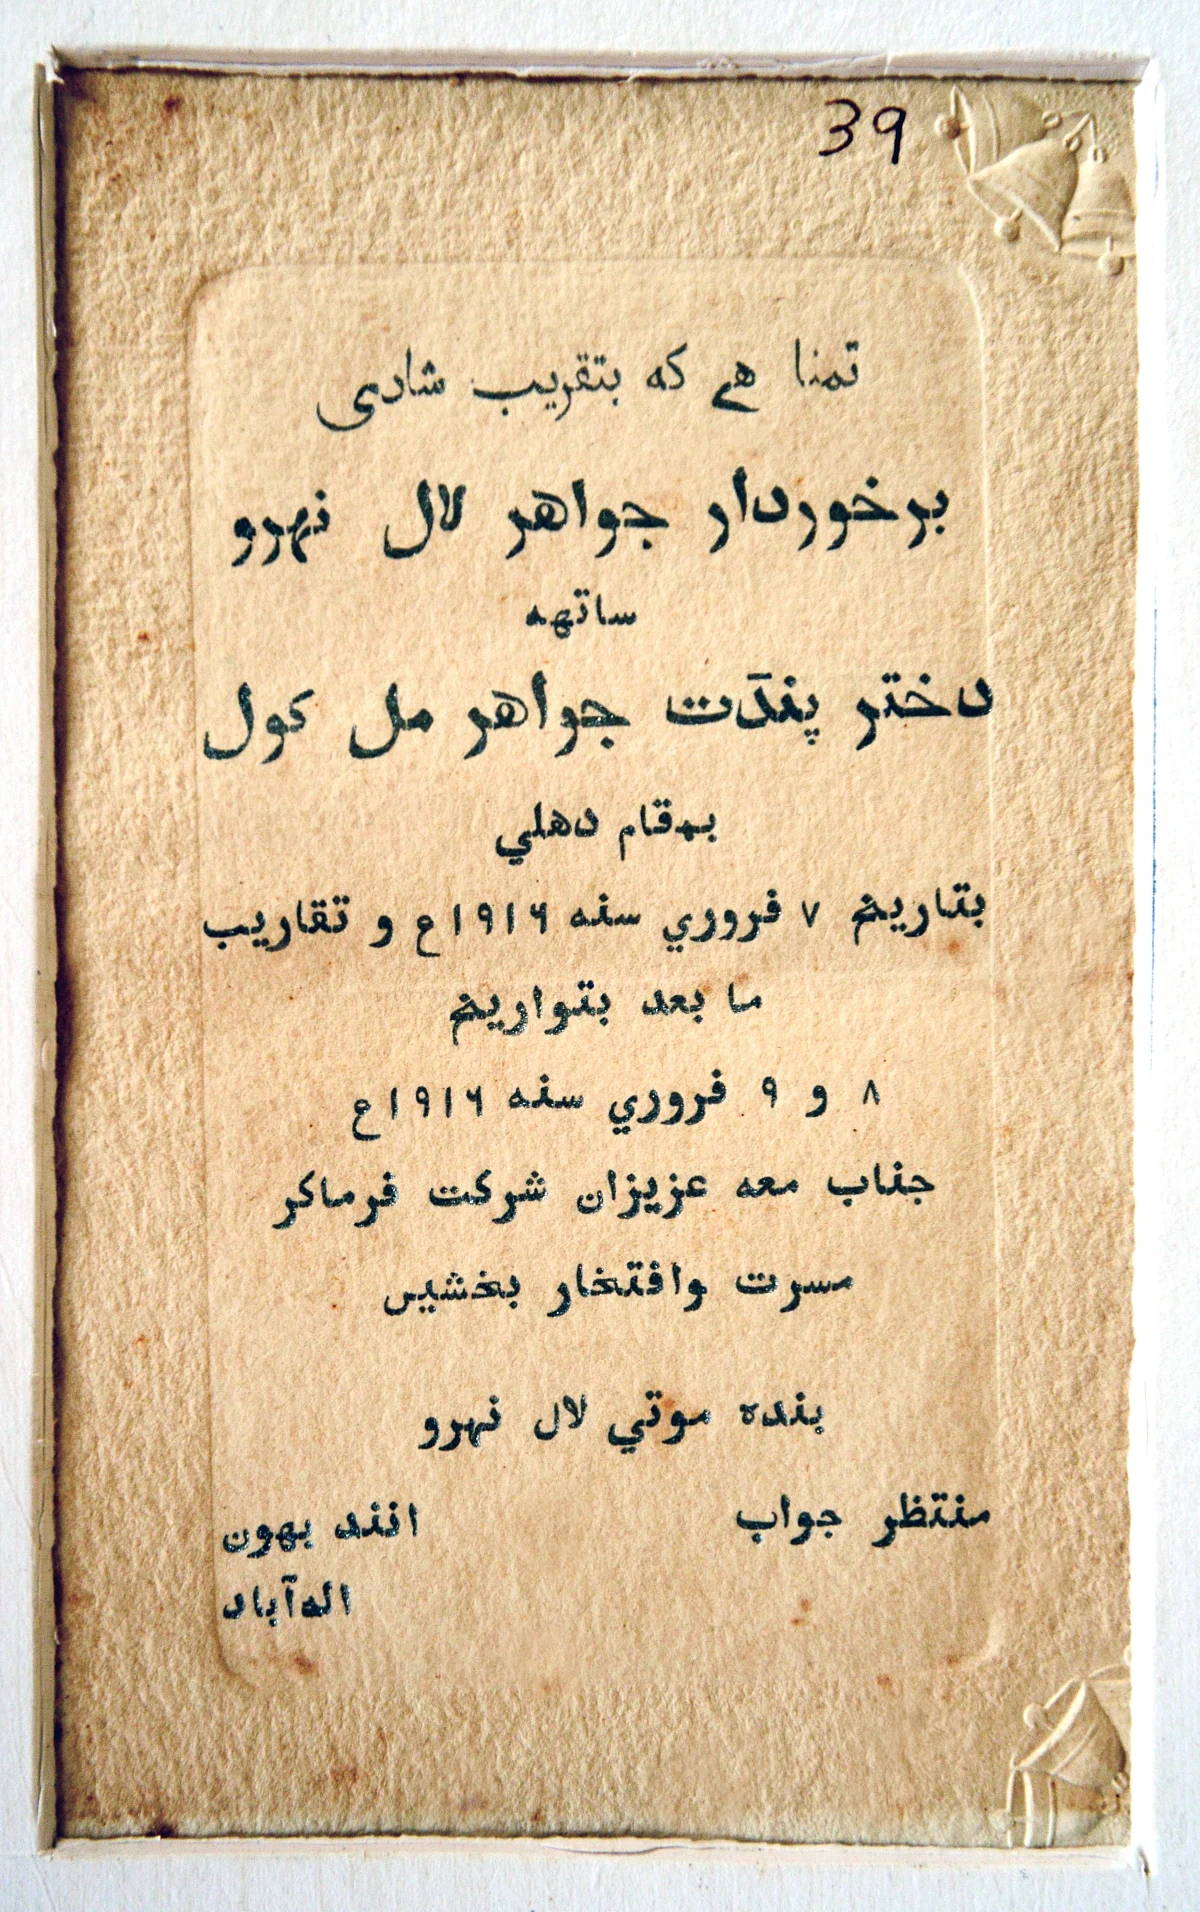 39
تمنا هے که بتقریب شادی
برخوردار جواهر لال نهرو
ساتهه
دختر پنڈت جواهر مل کول
بمقام دهلي
بتاریخ ۷ فروري سنه ۱۹۱۶ع و تقاریب
ما بعد بتواریخ
۸ و ۹ فروري سنه ۱۹۱۶ع
جناب معه عزیزان شرکت فرماکر
مسرت وافتخار بخشیں
بنده موتي لال نهرو
منتظر جواب
انند بهون
الهآباد